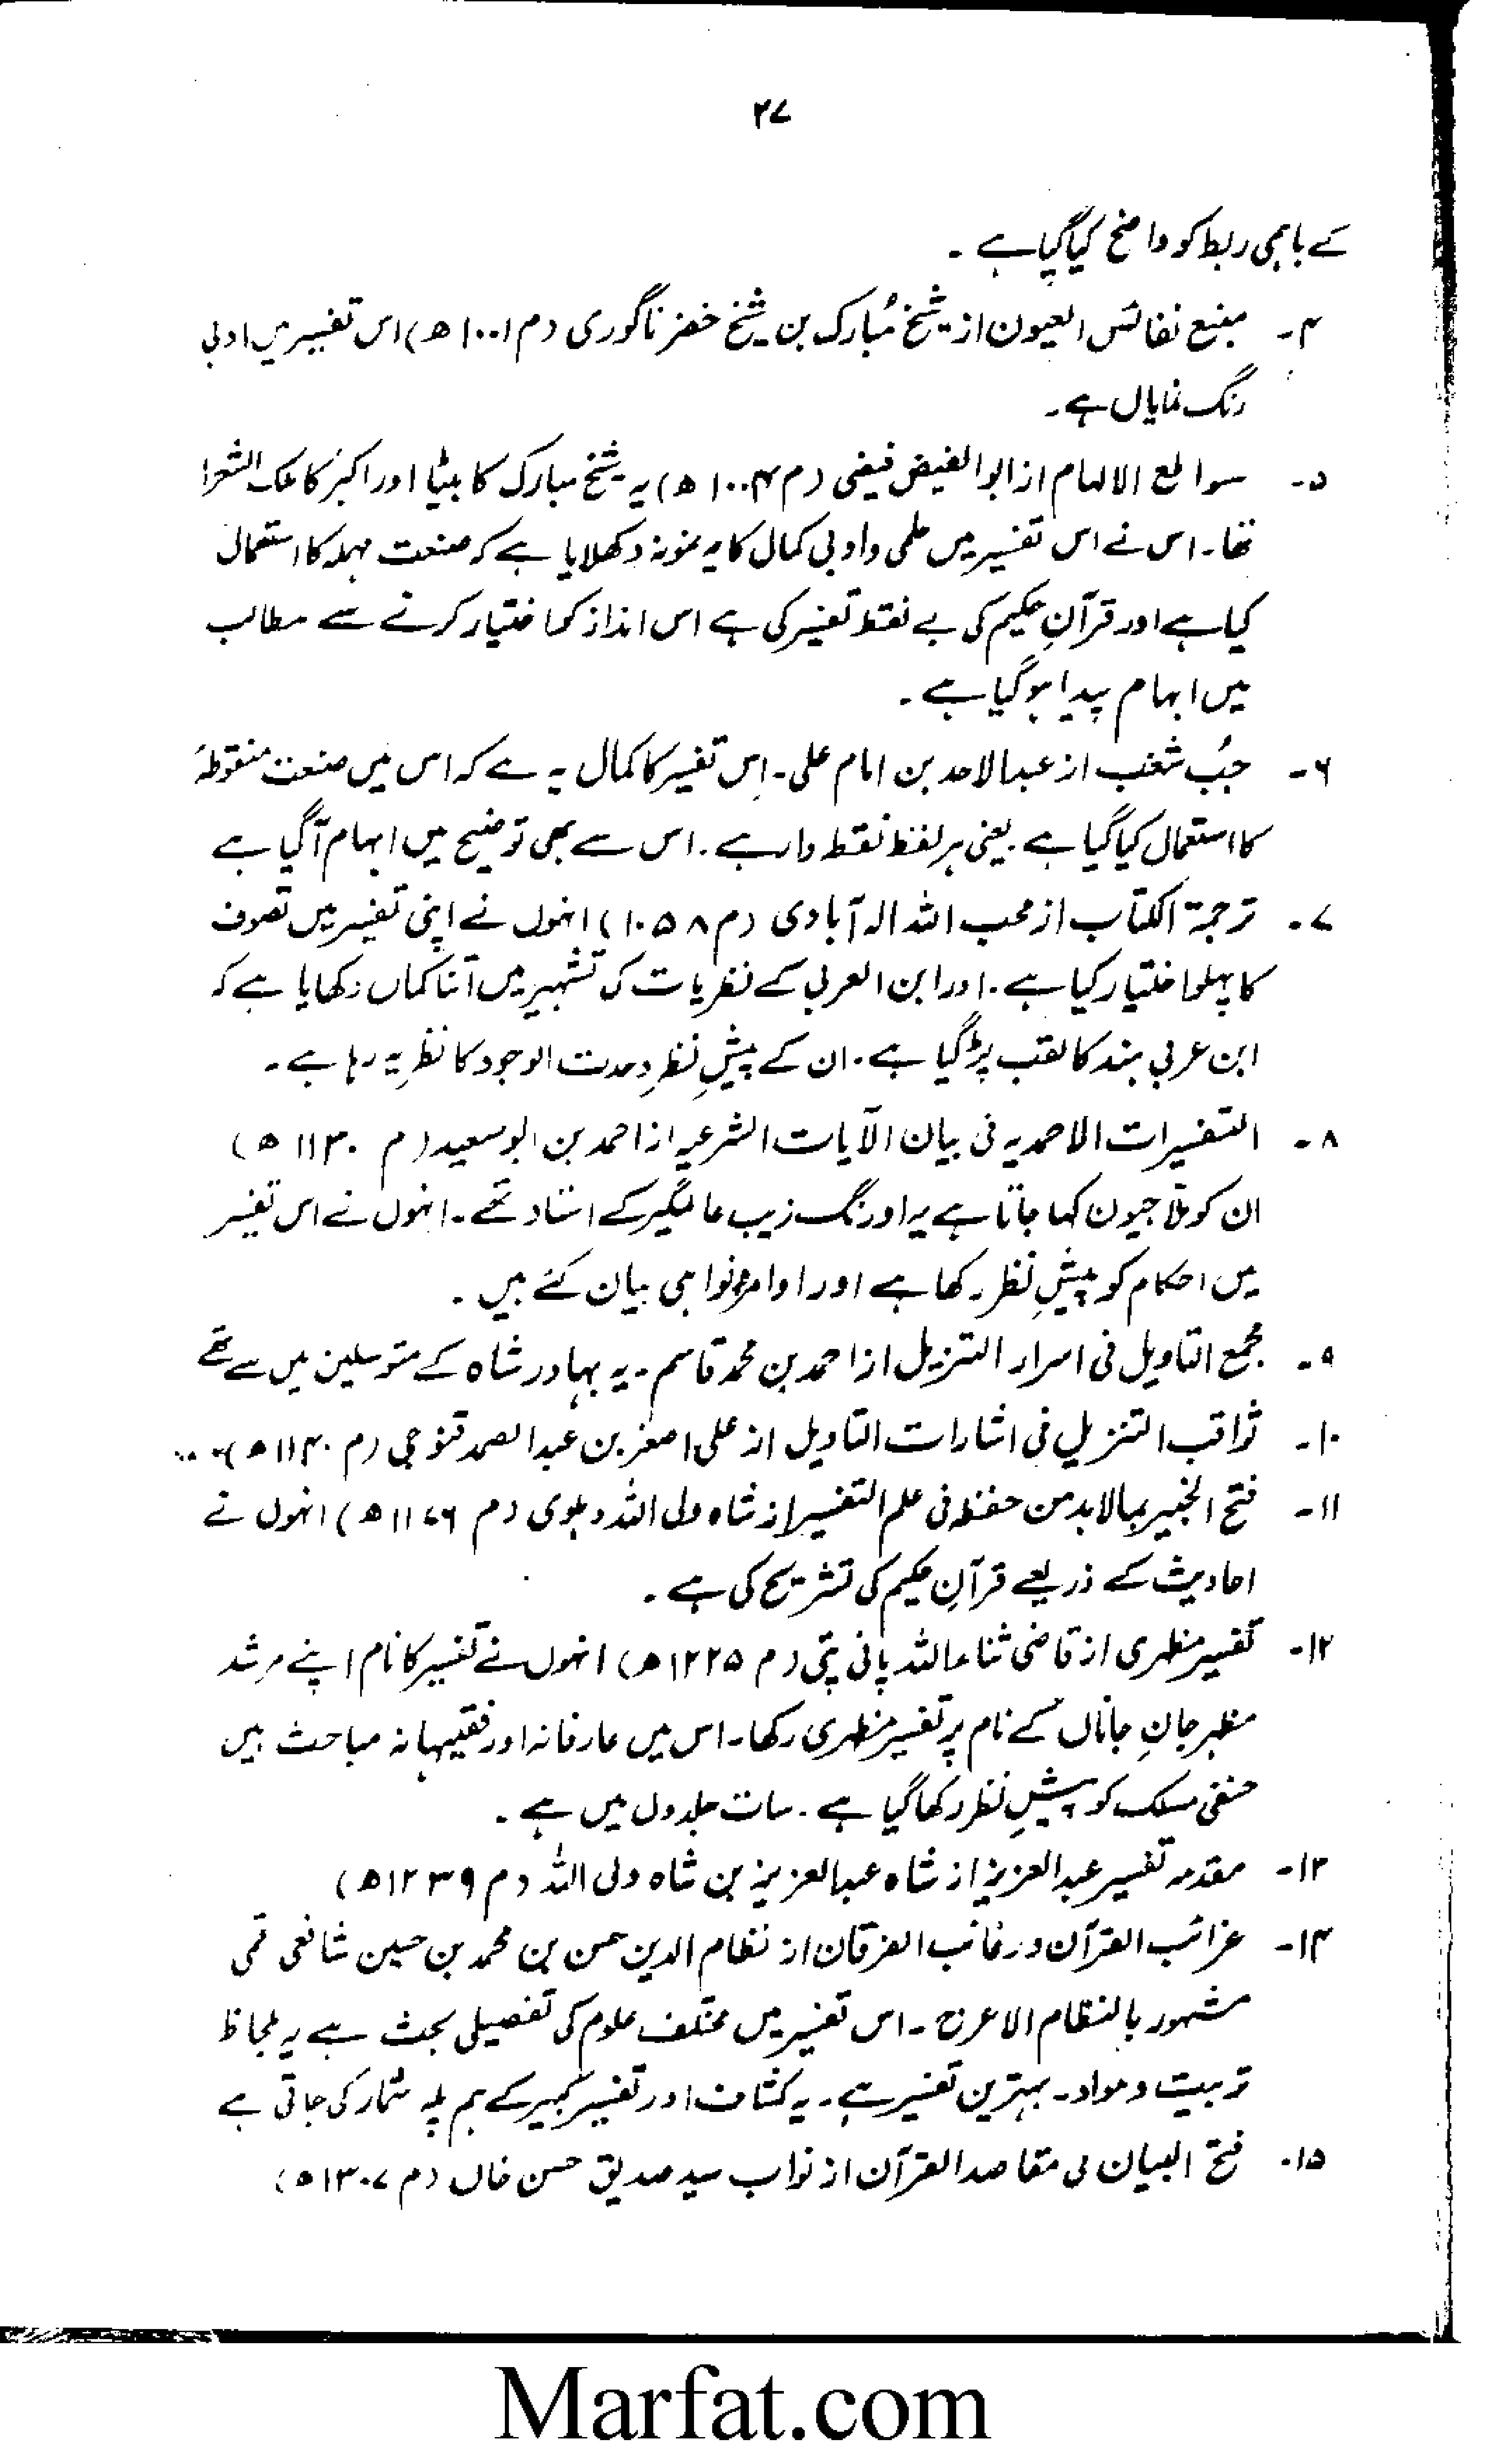 ۲۷
کے باہمی ربط کو واضح کیا گیا ہے ۔
۴۔ منبع نفائس العیون از شیخ مُبارک بن شیخ خضر ناگوری (م ۱۰۰۱ھ) اس تفسیر میں ادبی
رنگ نمایاں ہے۔
۵۔ سواطع الالہام از ابو الفیض فیضی (م ۱۰۰۴ھ) یہ شیخ مبارک کا بیٹا اور اکبر کا ملک الشعرا
تھا۔ اس نے اس تفسیر میں علمی و ادبی کمال کا یہ نمونہ دکھلایا ہے کہ صنعت مہملہ کا استعمال
کیا ہے اور قرآنِ حکیم کی بے نقط تفسیر کی ہے اس انداز کے اختیار کرنے سے مطالب
میں ابہام پیدا ہو گیا ہے ۔
۶۔ جبُ شغب از عبد الاحد بن امام علی۔ اِس تفسیر کا کمال یہ ہے کہ اس میں صنعت منقوطہ
کا استعمال کیا گیا ہے یعنی ہر لفظ نقط دار ہے ۔ اس سے بھی توضیح میں ابہام آگیا ہے
۷۔ ترجمۃ الکتاب از محب اللہ الہ آبادی (م ۱۰۵۸) انہوں نے اپنی تفسیر میں تصوف
کا پہلو اختیار کیا ہے ۔ اور ابن العربی کے نظریات کی تشہیر میں اتنا کمال دکھایا ہے کہ
ابن عربی ہند کا لقب پڑ گیا ہے ۔ ان کے پیشِ نظرِ وحدت الوجود کا نظریہ رہا ہے ۔
۸۔ التفسیرات الاحمدیہ فی بیان الآیات الشرعیہ از احمد بن ابو سعید (م ۱۱۳۰ھ)
ان کو ملّا جیون کہا جاتا ہے یہ اورنگ زیب عالمگیر کے استاد تھے ۔ انہوں نے اس تفسیر
میں احکام کو پیشِ نظر رکھا ہے اور اوامر و نواہی بیان کئے ہیں ۔
۹۔ مجمع التاویل فی اسرار التنزیل از احمد بن محمد قاسم ۔ یہ بہادر شاہ کے متوسلین میں سے تھے
۱۰۔ ثواقب التنزیل فی اشارات التاویل از علی اصغر بن عبد الصمد قنوجی (م ۱۱۴۰ھ)
۱۱۔ فتح الخبیر بمالا بد من حفظہ فی علم التفسیر از شاہ ولی اللہ دہلوی (م ۱۱۷۶ھ) انہوں نے
احادیث کے ذریعے قرآنِ حکیم کی تشریح کی ہے ۔
۱۲۔ تفسیر مظہری از قاضی ثناء اللہ پانی پتی (م ۱۲۲۵ھ) انہوں نے تفسیر کا نام اپنے مرشد
مظہر جانِ جاناں کے نام پر تفسیر مظہری رکھا۔ اس میں عارفانہ اور فقیہانہ مباحث ہیں
حنفی مسلک کو پیشِ نظر رکھا گیا ہے ۔ سات جلدوں میں ہے ۔
۱۳۔ مقدمہ تفسیر عبد العزیز از شاہ عبد العزیز بن شاہ ولی اللہ (م ۱۲۳۹ھ)
۱۴۔ غرائب القرآن و رغائب الفرقان از نظام الدین حسن بن محمد بن حسین شافعی قمی
مشہور بالنظام الاعرج ۔ اس تفسیر میں مختلف علوم کی تفصیلی بحث ہے یہ بلحاظ
تربیت و مواد ۔ بہترین تفسیر ہے ۔ یہ کشاف اور تفسیر کبیر کے ہم پلہ شمار کی جاتی ہے
۱۵۔ فتح البیان فی مقاصد القرآن از نواب سید صدیق حسن خاں (م ۱۳۰۷ھ)
Marfat.com